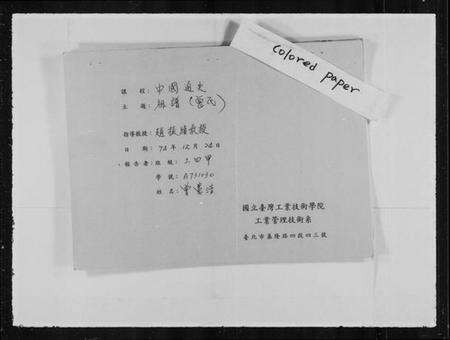 colored paper
課程: 中國通史
主題: 族譜(曾氏)
指導教授: 趙振績教授
日期: 72年12月28日
報告者: 班級: 工四甲
學號: A731030
姓名: 曾憲浩
國立臺灣工業技術學院
工業管理技術系
臺北市基隆路四段四三號